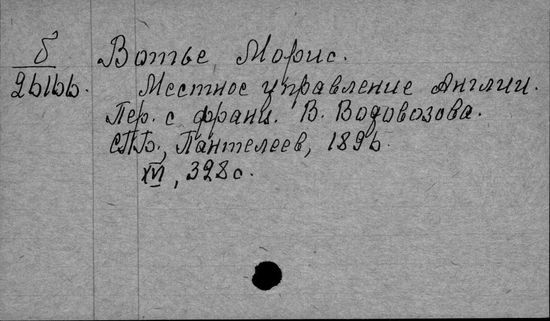 б Вотье Морис.
26166. Местное управление Англии.
Пер. с франц. В. Водовозова.
СПБ., Пантелеев, 1896.
XVI, 328с.